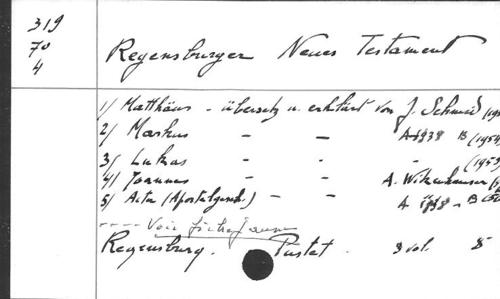 319
70
4
Regensburger Neues Testament
1/ Matthäus - übersetzt u. erklärt von J. Schmid
2/ Markus - - A 1938 B (1954)
3/ Lukas - - - (1953)
4/ Joannes - - A.
5/ Acta (Apostelgesch.) - - A - B
---- Voir fiche jaune
Regensburg. Pustet. 9 vol. 8°